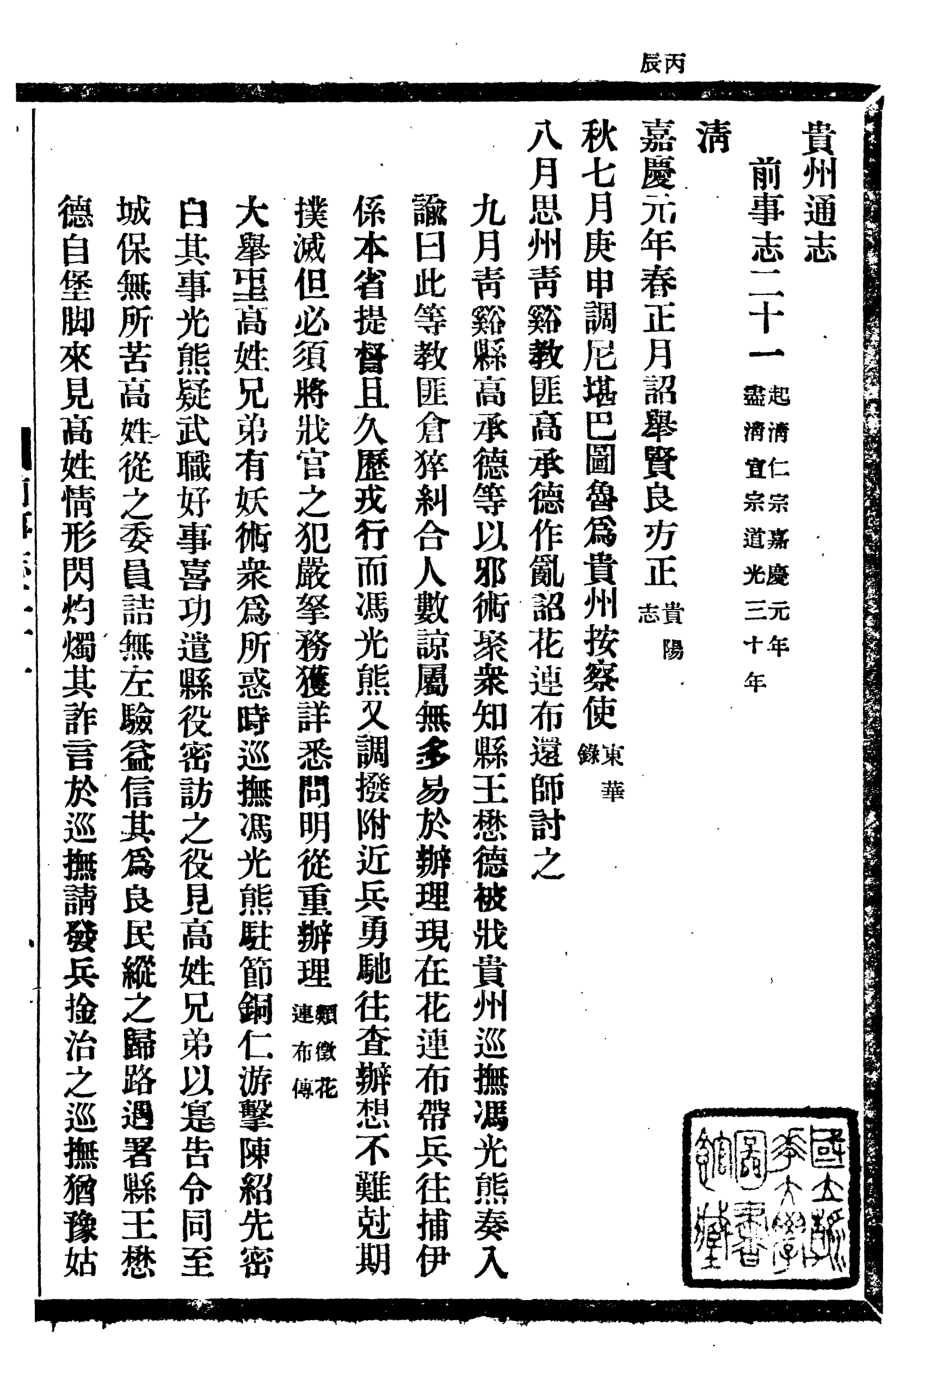 丙辰
貴州通志
前事志二十一 起淸仁宗嘉慶元年盡淸宣宗道光三十年
淸
嘉慶元年春正月詔舉賢良方正 貴陽志
秋七月庚申調尼堪巴圖魯爲貴州按察使 東華錄
八月思州靑谿教匪高承德作亂詔花連布還師討之
九月靑谿縣高承德等以邪術聚衆知縣王懋德被戕貴州巡撫馮光熊奏入
諭曰此等教匪倉猝糾合人數諒屬無多易於辦理現在花連布帶兵往捕伊
係本省提督且久歷戎行而馮光熊又調撥附近兵勇馳往査辦想不難尅期
撲滅但必須將戕官之犯嚴拏務獲詳悉問明從重辦理 類徵花連布傳
大舉里高姓兄弟有妖術衆爲所惑時巡撫馮光熊駐節銅仁游擊陳紹先密
白其事光熊疑武職好事喜功遣縣役密訪之役見高姓兄弟以寔告令同至
城保無所苦高姓從之委員詰無左驗益信其爲良民縱之歸路遇署縣王懋
德自堡脚來見高姓情形閃灼燭其詐言於巡撫請發兵捦治之巡撫猶豫姑
國立
大學
圖書
館藏